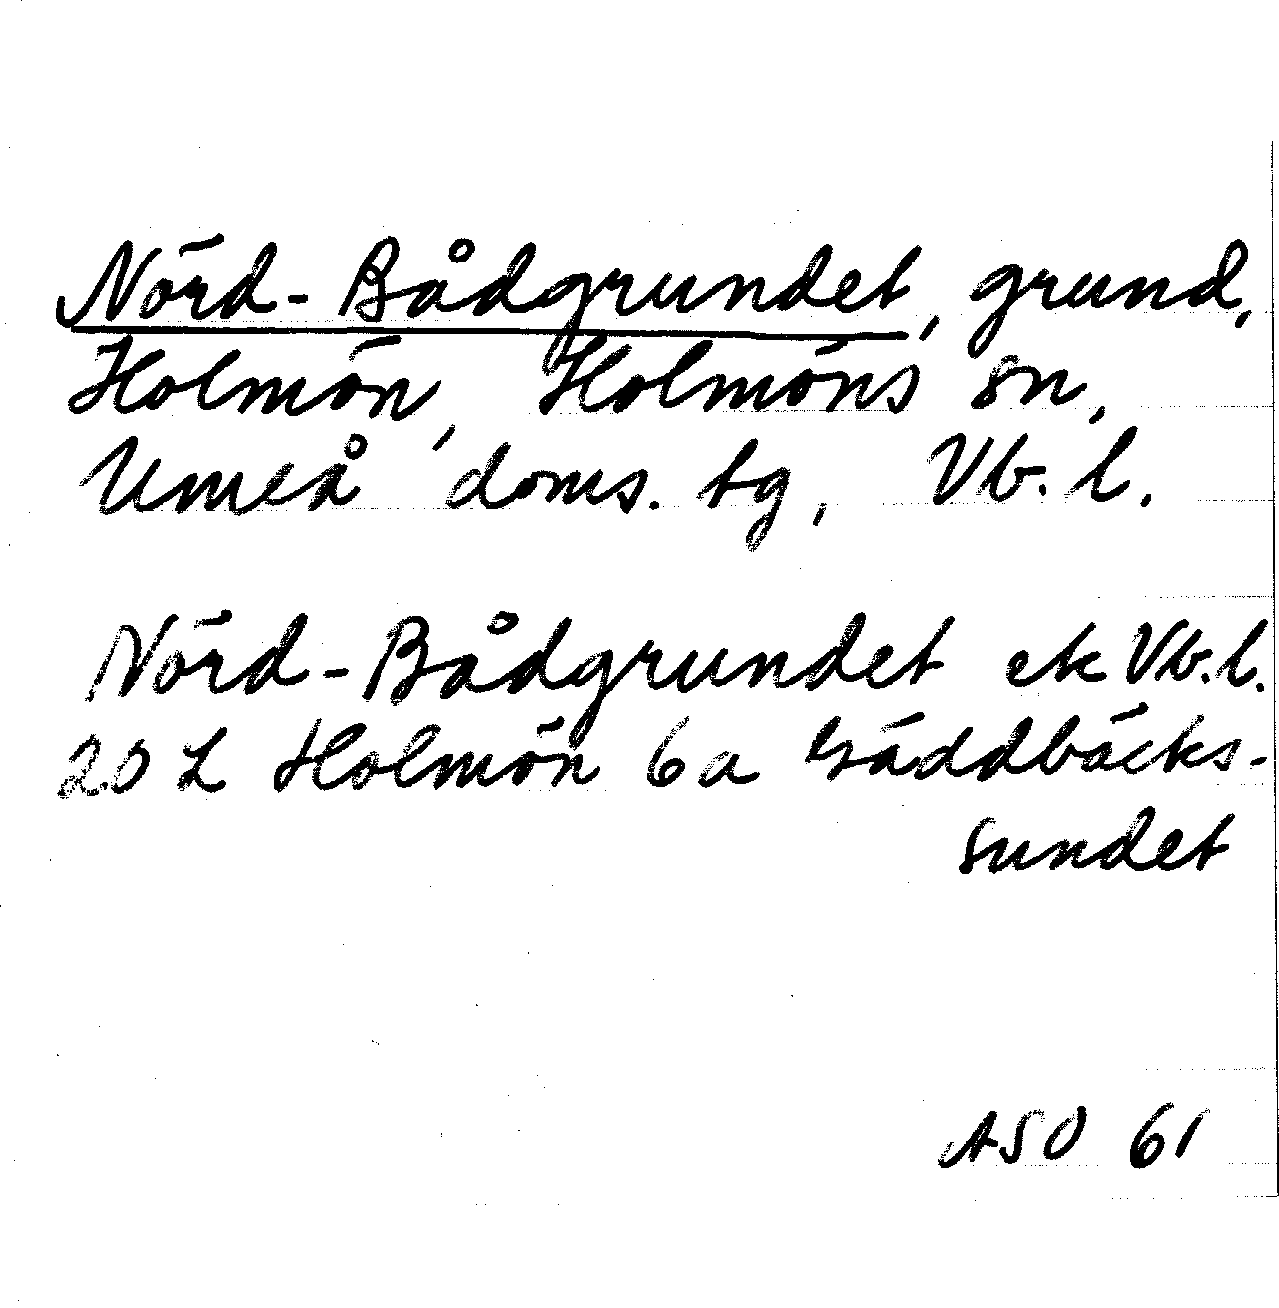 Nörd-Bådgrundet, grund,
Holmön, Holmöns sn,
Umeå doms. tg, Vb. l.
Nörd-Bådgrundet ek Vb. l.
20 L Holmön 6a Gäddbäcks-
sundet
ASO 61